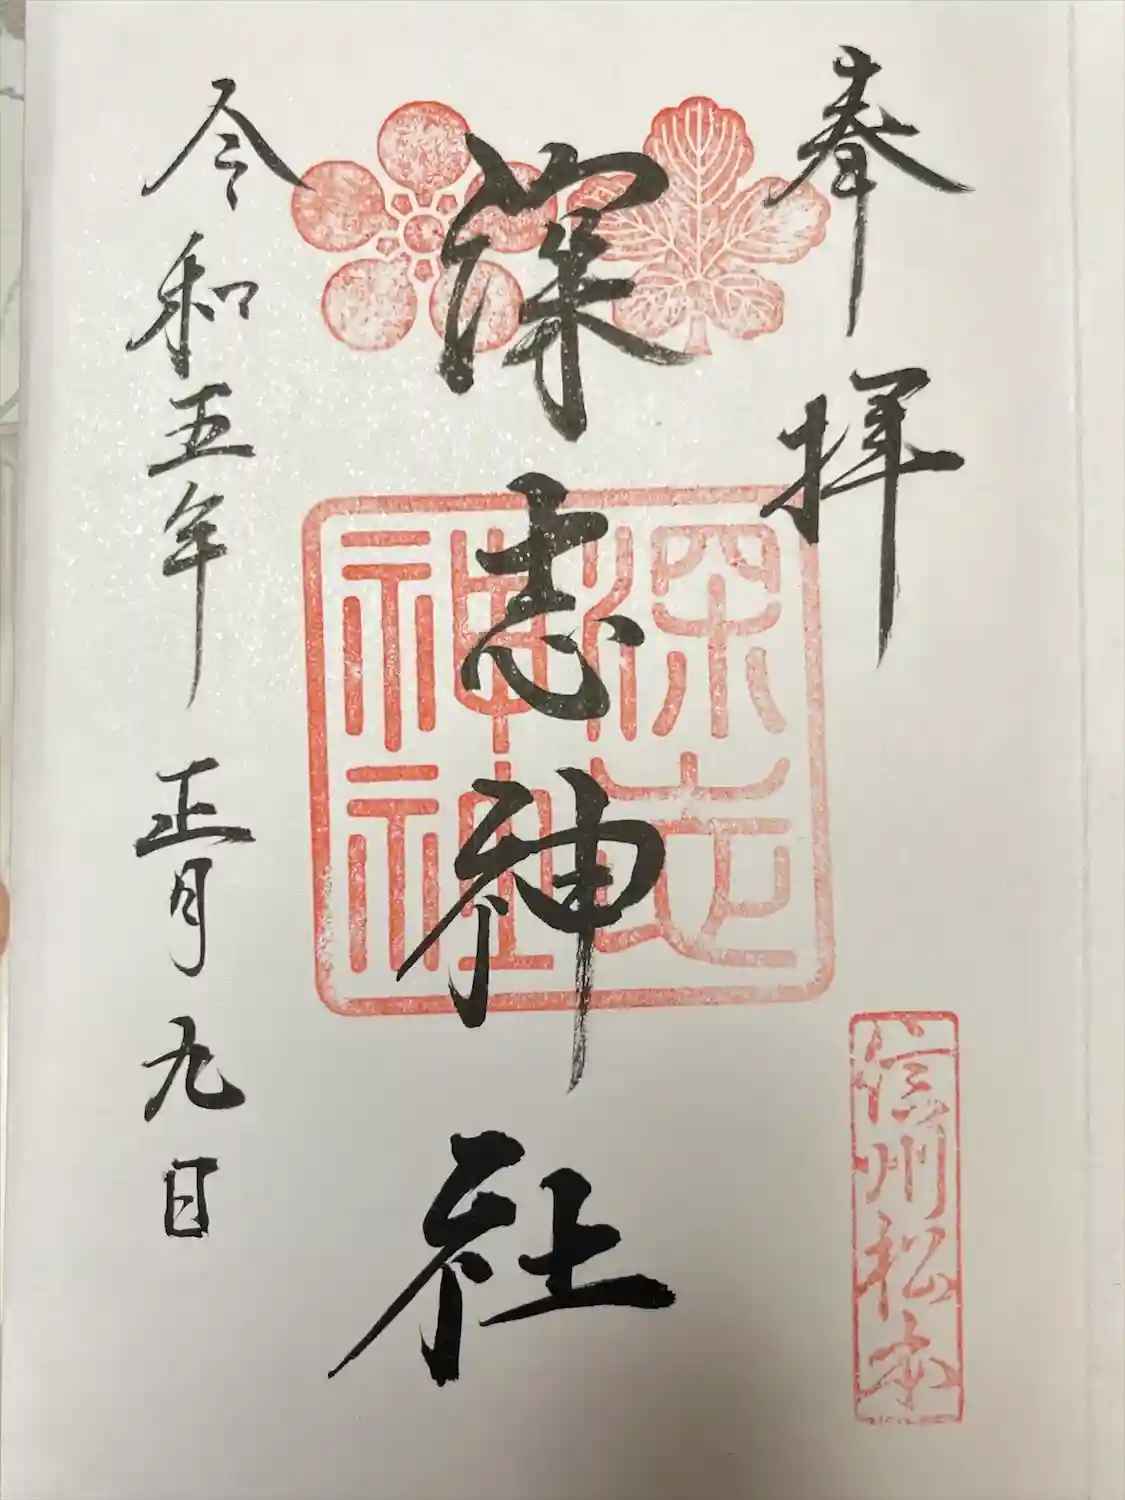 奉拝
信州松本
深志神社
深志神社
令和五年 正月九日